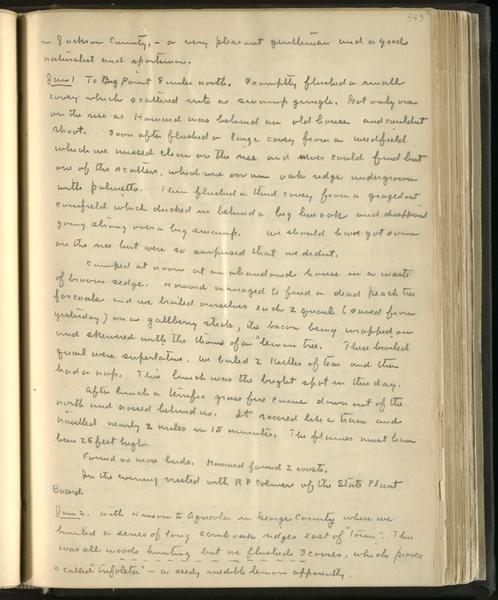 343
in Jackson County, - a very pleasant gentleman and a good
naturalist and sportsman.
Jan 1 To Big Point 8 miles north. Promptly flushed a small
covey which scattered into a swamp jungle. Got only one
on the rise as Howard was behind an old house and couldn't
shoot. Soon after flushed a large covey from a weedfield
which we missed clean on the rise and never could find but
one of the scatters, which were over in oak ridge undergrown
with palmetto. Then flushed a third covey from a grazed out
cornfield which ducked in behind a big live oak and disappeared
going strong over a big swamp. We should have got some
on the rise but were so surprised that we didn't.
Camped at noon at an abandoned house in a waste
of broom sedge. Howard managed to find a dead peach tree
for coals and we broiled ourselves each 2 quail (saved from
yesterday) on a gallberry stick, the bacon being wrapped on
and skewered with the thorns of a "lemon tree. These broiled
quail were superlative. We boiled 2 kettles of tea and then
had a nap. This lunch was the bright spot in the day.
After lunch a terrific grass fire came down out of the
north and crossed behind us. It roared like a train and
travelled nearly 2 miles in 15 minutes. The flames must have
been 25 feet high.
Found no more birds. Howard found 2 roosts.
In the evening visited with R P Colmer of the State Plant
Board.
Jan 2. With to Agricola in George County where we
hunted a series of long scrub oak ridges east of "town". This
was all woods hunting but we flushed 3 covies, which proves
o called "trifoleta" - a seedy inedible lemon apparently.